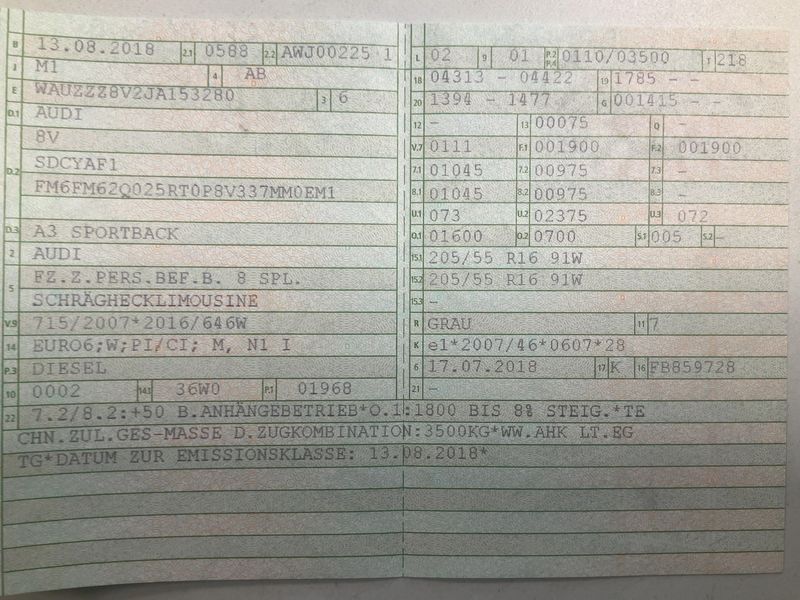 B 13.08.2018 2.1 0588 2.2 AWJ00225 1
J M1 4 AB
E WAUZZZ8V2JA153280 3 6
D.1 AUDI
8V
D.2 SDCYAF1
FM6FM62Q025RT0P8V337MM0EM1
D.3 A3 SPORTBACK
2 AUDI
5 FZ.Z.PERS.BEF.B. 8 SPL.
SCHRÄGHECKLIMOUSINE
V.9 715/2007*2016/646W
14 EURO6;W;PI/CI; M, N1 I
P.3 DIESEL
10 0002 14.1 36W0 P.1 01968
L 02 9 01 P.2 P.4 0110/03500 T 218
18 04313 - 04422 19 1785 - -
20 1394 - 1477 G 001415 - -
12 - 13 00075 Q -
V.7 0111 F.1 001900 F.2 001900
7.1 01045 7.2 00975 7.3 -
8.1 01045 8.2 00975 8.3 -
U.1 073 U.2 02375 U.3 072
O.1 01600 O.2 0700 S.1 005 S.2 -
15.1 205/55 R16 91W
15.2 205/55 R16 91W
15.3 -
R GRAU 11 7
K e1*2007/46*0607*28
6 17.07.2018 17 K 16 FB859728
21 -
22 7.2/8.2:+50 B.ANHÄNGEBETRIEB*O.1:1800 BIS 8% STEIG.*TE
CHN.ZUL.GES-MASSE D.ZUGKOMBINATION:3500KG*WW.AHK LT.EG
TG*DATUM ZUR EMISSIONSKLASSE: 13.08.2018*